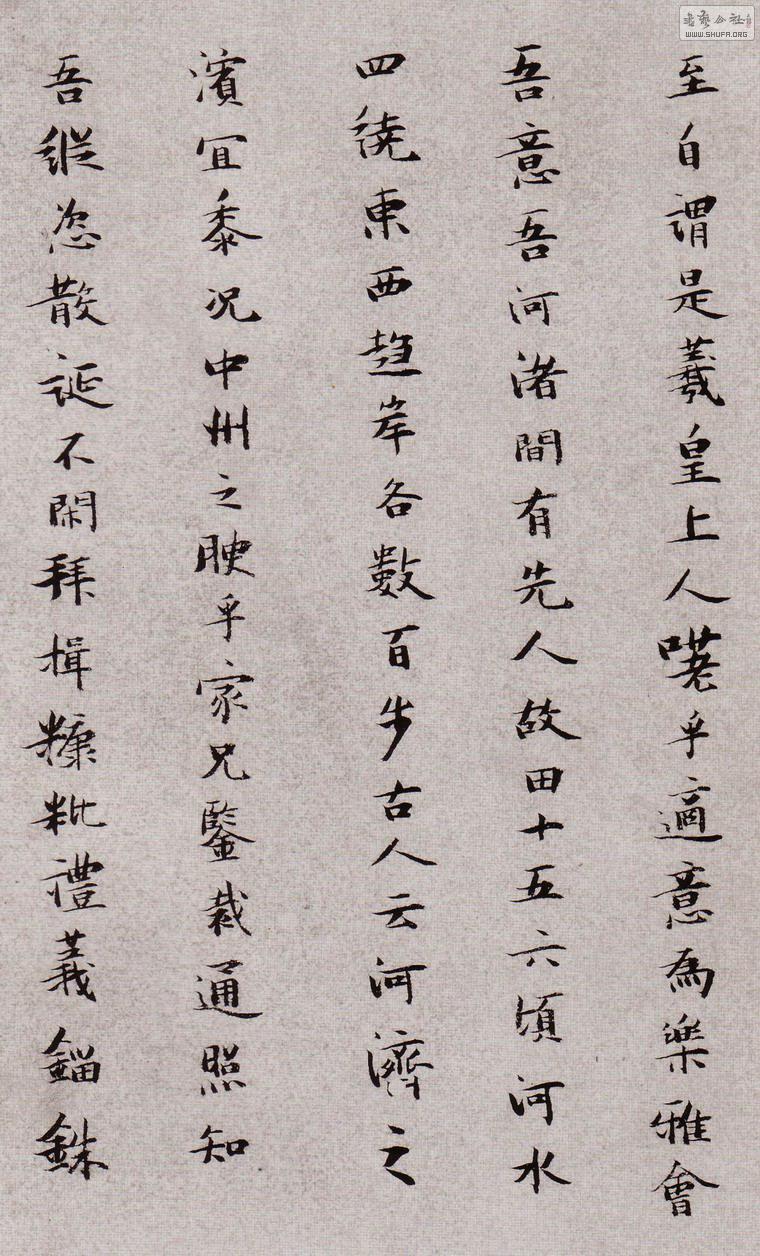 至自謂是羲皇上人嗟乎適意為樂雅會
吾意吾河渚間有先人故田十五六頃河水
四繞東西趂岸各數百步古人云河濟之
濱宜黍況中州之腴乎家兄鑒裁通照知
吾縱恣散誕不閑拜揖糠粃禮義錙銖
書藝公社
WWW.SHUFA.ORG